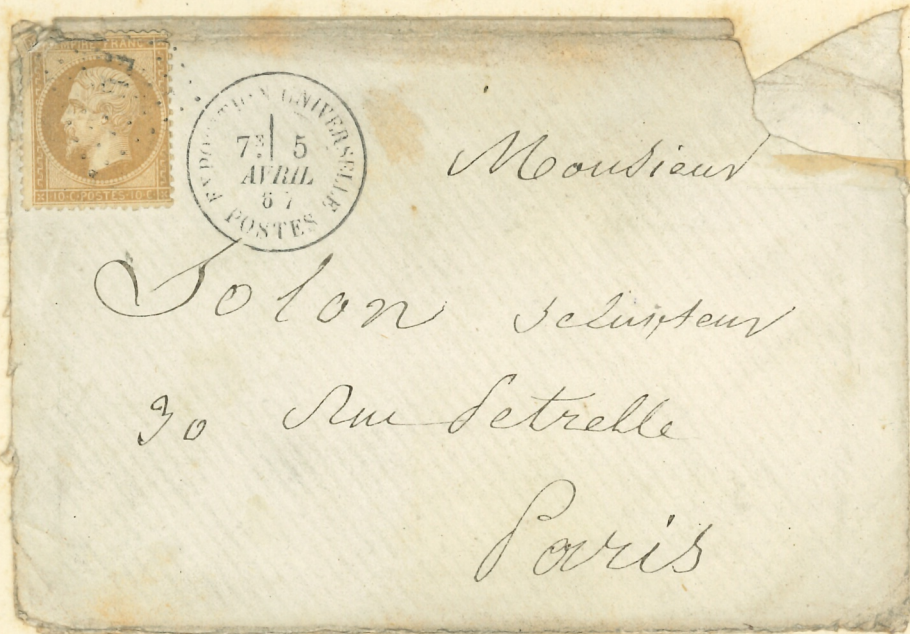 EMPIRE FRANC
10·C·POSTES·10·C
EXPOSITION UNIVERSELLE
7E 5
AVRIL
67
POSTES
Monsieur
Solon Sculpteur
30 Rue Petrelle
Paris